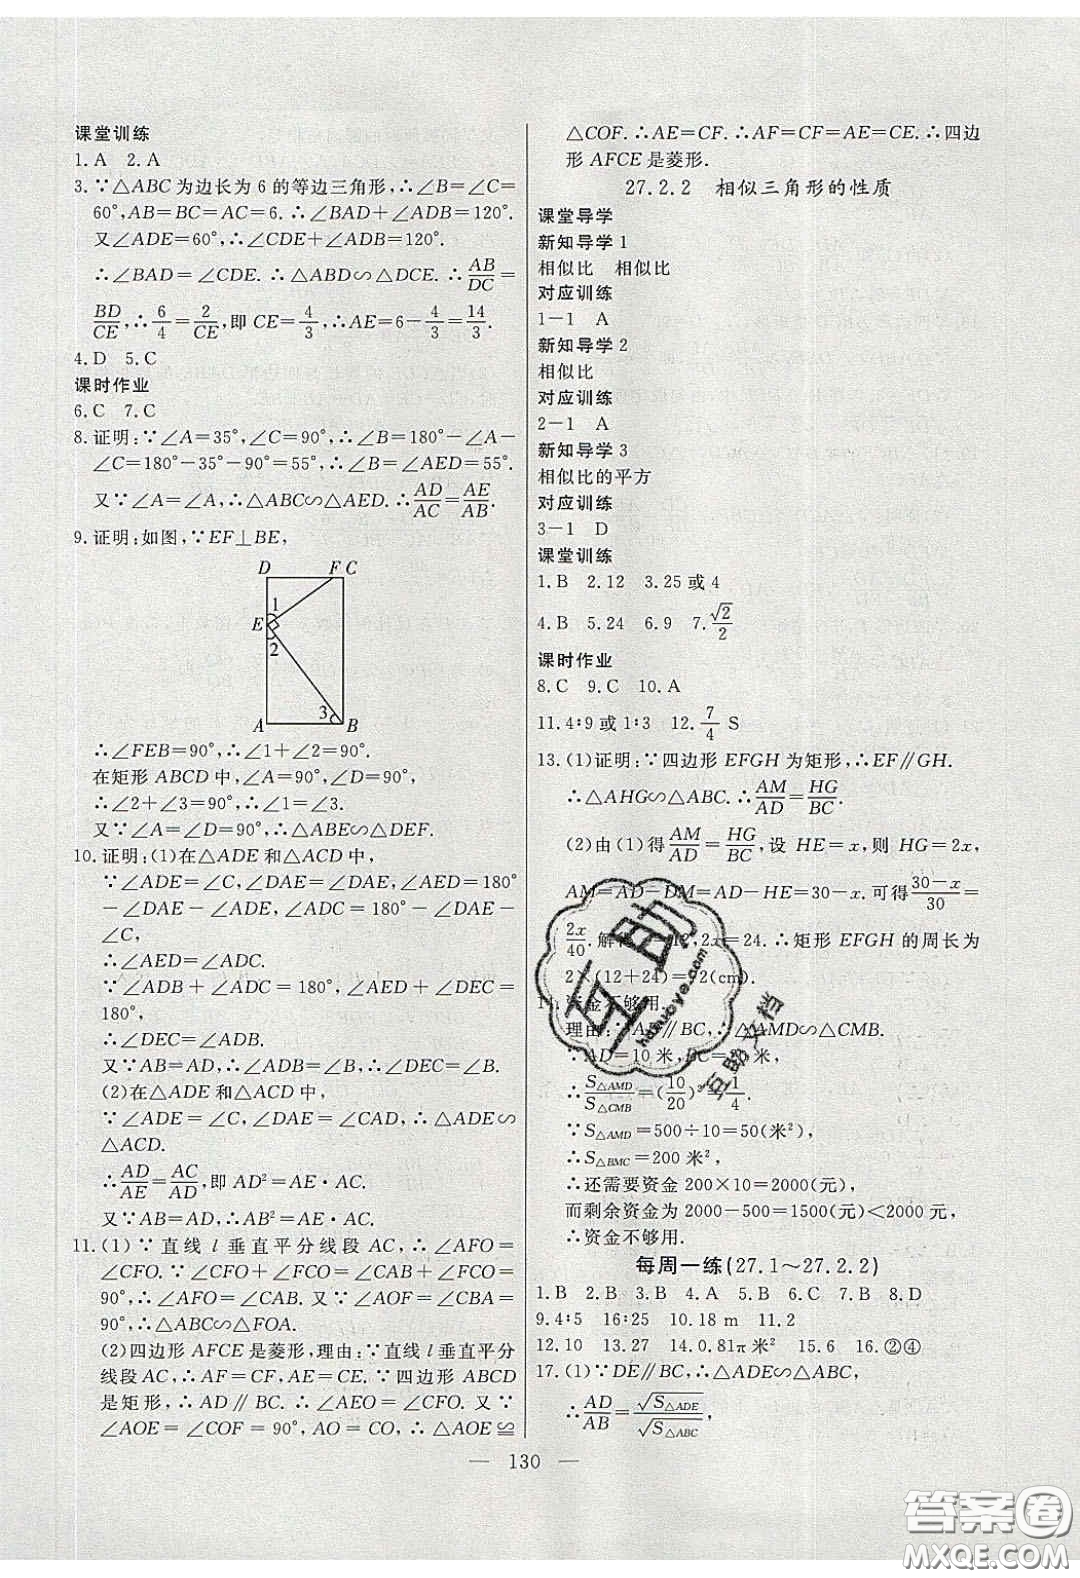 课堂训练
1.A 2.A
3.∵△ABC为边长为6的等边三角形,∴∠B=∠C=
60°,AB=BC=AC=6.∴∠BAD+∠ADB=120°.
又∠ADE=60°,∴∠CDE+∠ADB=120°.
∴∠BAD=∠CDE.∴△ABD∽△DCE.∴AB/DC=
BD/CE,∴6/4=2/CE,即CE=4/3,∴AE=6-4/3=14/3.
4.D 5.C
课时作业
6.C 7.C
8.证明:∵∠A=35°,∠C=90°,∴∠B=180°-∠A-
∠C=180°-35°-90°=55°,∴∠B=∠AED=55°.
又∵∠A=∠A,∴△ABC∽△AED.∴AD/AC=AE/AB.
9.证明:如图,∵EF⊥BE,
D F C
1
E
2
3
A B
∴∠FEB=90°,∴∠1+∠2=90°.
在矩形ABCD中,∠A=90°,∠D=90°,
∴∠2+∠3=90°,∴∠1=∠3.
又∵∠A=∠D=90°,∴△ABE∽△DEF.
10.证明:(1)在△ADE和△ACD中,
∵∠ADE=∠C,∠DAE=∠DAE,∠AED=180°
-∠DAE-∠ADE,∠ADC=180°-∠DAE-
∠C,
∴∠AED=∠ADC.
∵∠ADB+∠ADC=180°,∠AED+∠DEC=
180°,
∴∠DEC=∠ADB.
又∵AB=AD,∴∠ADB=∠B.∴∠DEC=∠B.
(2)在△ADE和△ACD中,
∵∠ADE=∠C,∠DAE=∠CAD,∴△ADE∽
△ACD.
∴AD/AE=AC/AD,即AD²=AE·AC.
又∵AB=AD,∴AB²=AE·AC.
11.(1)∵直线l垂直平分线段AC,∴∠AFO=
∠CFO.∵∠CFO+∠FCO=∠CAB+∠FCO=
90°,∴∠AFO=∠CAB.又∵∠AOF=∠CBA=
90°,∴△ABC∽△FOA.
(2)四边形AFCE是菱形,理由:∵直线l垂直平分
线段AC,∴AF=CF,AE=CE.∵四边形ABCD
是矩形,∴AD∥BC.∴∠AEO=∠CFO.又∵
∠AOE=∠COF=90°,AO=CO,∴△AOE≌
△COF.∴AE=CF.∴AF=CF=AE=CE.∴四边
形AFCE是菱形.
27.2.2 相似三角形的性质
课堂导学
新知导学1
相似比 相似比
对应训练
1-1 A
新知导学2
相似比
对应训练
2-1 A
新知导学3
相似比的平方
对应训练
3-1 D
课堂训练
1.B 2.12 3.25或4
4.B 5.24 6.9 7.√2/2
课时作业
8.C 9.C 10.A
11.4∶9或1∶3 12.7/4 S
13.(1)证明:∵四边形EFGH为矩形,∴EF∥GH.
∴△AHG∽△ABC.∴AM/AD=HG/BC.
(2)由(1)得AM/AD=HG/BC,设HE=x,则HG=2x,
AM=AD-DM=AD-HE=30-x.可得(30-x)/30=
2x/40.解 12,2x=24.∴矩形EFGH的周长为
2×(12+24)=72(cm).
资金不够用.
理由:∵AD∥BC,∴△AMD∽△CMB.
∵AD=10米,BC= 米,
∴S△AMD/S△CMB=(10/20)²=1/4.
∵S△AMD=500÷10=50(米²),
∴S△BMC=200米².
∴还需要资金200×10=2000(元),
而剩余资金为2000-500=1500(元)<2000元,
∴资金不够用.
每周一练(27.1～27.2.2)
1.B 2.B 3.B 4.A 5.B 6.C 7.B 8.D
9.4∶5 16∶25 10.18 m 11.2
12.10 13.27 14.0.81π米² 15.6 16.②④
17.(1)∵DE∥BC,∴△ADE∽△ABC,
∴AD/AB=√S△ADE/√S△ABC,
— 130 —
互助
huzuoye.com
互助文档
答案圈
MXQE.COM